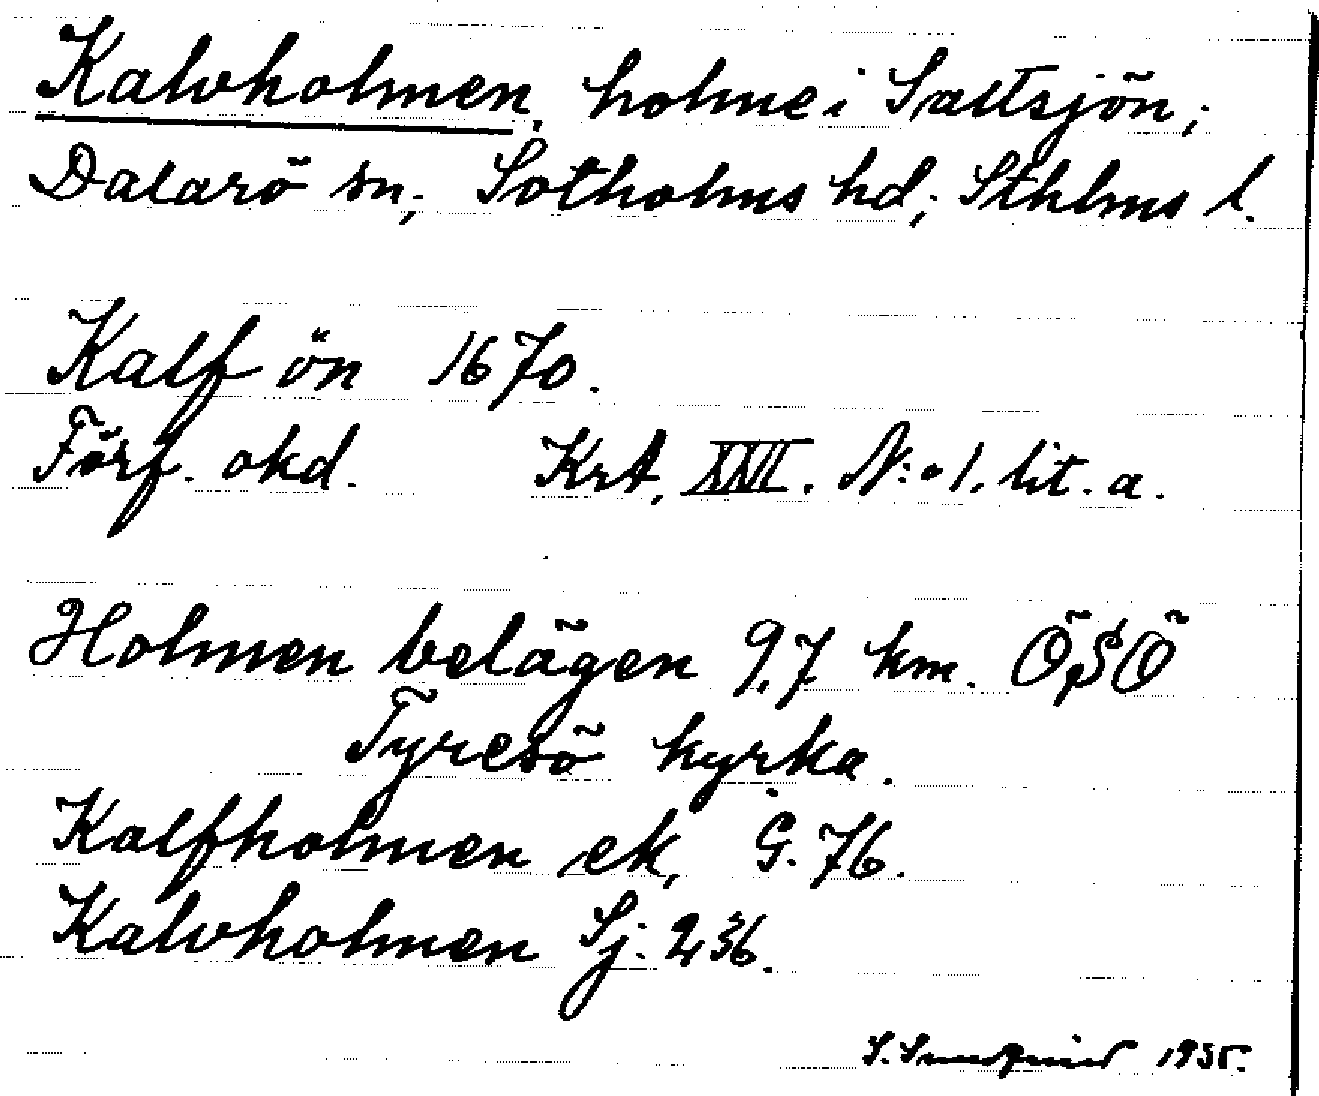 Kalvholmen, holme i Saltsjön;
Dalarö sn; Sotholms hd; Sthlms l.
Kalf ön 1670.
Förf. okd. Krt. XXVI. N:o 1. lit. a.
Holmen belägen 9,7 km. ÖSÖ
Tyresö kyrka.
Kalfholmen ek, G. 76.
Kalvholmen Sj. 236.
S. 1935.